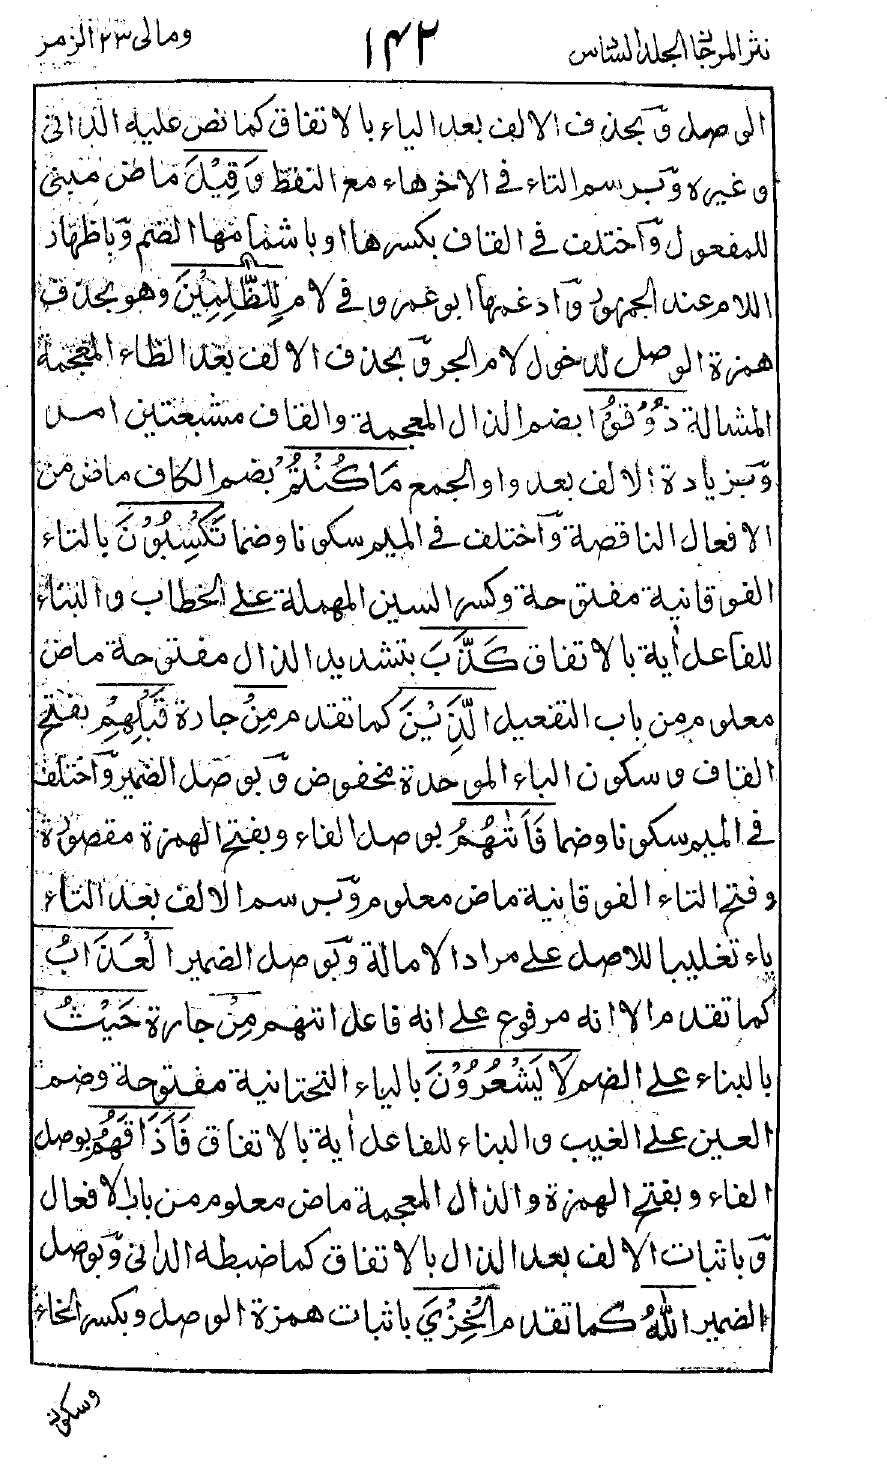 نثر المرجان الجلد السادس ۱۴۲ ومالى ۲۳ الزمر
الوصل وبحذف الالف بعد الياء بالاتفاق كما نص عليه الدانى
وغيره وبرسم التاء فى الاخر هاء مع النقط وَقِيْلَ ماض مبنى
للمفعول واختلف فى القاف بكسرها او باشمامها الضم وباظهار
اللام عند الجمهور وادغمها ابو عمرو فى لام لِلظّٰلِمِيْنَ وهو بحذف
همزة الوصل لدخول لام الجر وبحذف الالف بعد الظاء المعجمة
المشالة ذُوْقُوْا بضم الذال المعجمة والقاف مشبعتين امر
وبزيادة الالف بعد واو الجمع مَا كُنْتُمْ بضم الكاف ماض من
الافعال الناقصة واختلف فى الميم سكونا وضما تَكْسِبُوْنَ بالتاء
الفوقانية مفتوحة وكسر السين المهملة على الخطاب والبناء
للفاعل اٰية بالاتفاق كَذَّبَ بتشديد الذال مفتوحة ماض
معلوم من باب التفعيل الَّذِيْنَ كما تقدم مِنْ جارة قَبْلِهِمْ بفتح
القاف وسكون الباء الموحدة مخفوض وبوصل الضمير واختلف
فى الميم سكونا وضما فَاَتٰىهُمُ بوصل الفاء وبفتح الهمزة مقصورة
وفتح التاء الفوقانية ماض معلوم وبرسم الالف بعد التاء
ياء تغليبا للاصل على مراد الامالة وبوصل الضمير الْعَذَابُ
كما تقدم الا انه مرفوع على انه فاعل اتٰهم مِنْ جارة حَيْثُ
بالبناء على الضم لَا يَشْعُرُوْنَ بالياء التحتانية مفتوحة وضم
العين على الغيب والبناء للفاعل اٰية بالاتفاق فَاَذَاقَهُمُ بوصل
الفاء وبفتح الهمزة والذال المعجمة ماض معلوم من باب الافعال
وباثبات الالف بعد الذال بالاتفاق كما ضبطه الدانى وبوصل
الضمير اللّٰهُ كما تقدم الْخِزْيَ باثبات همزة الوصل وبكسر الخاء
وسكون